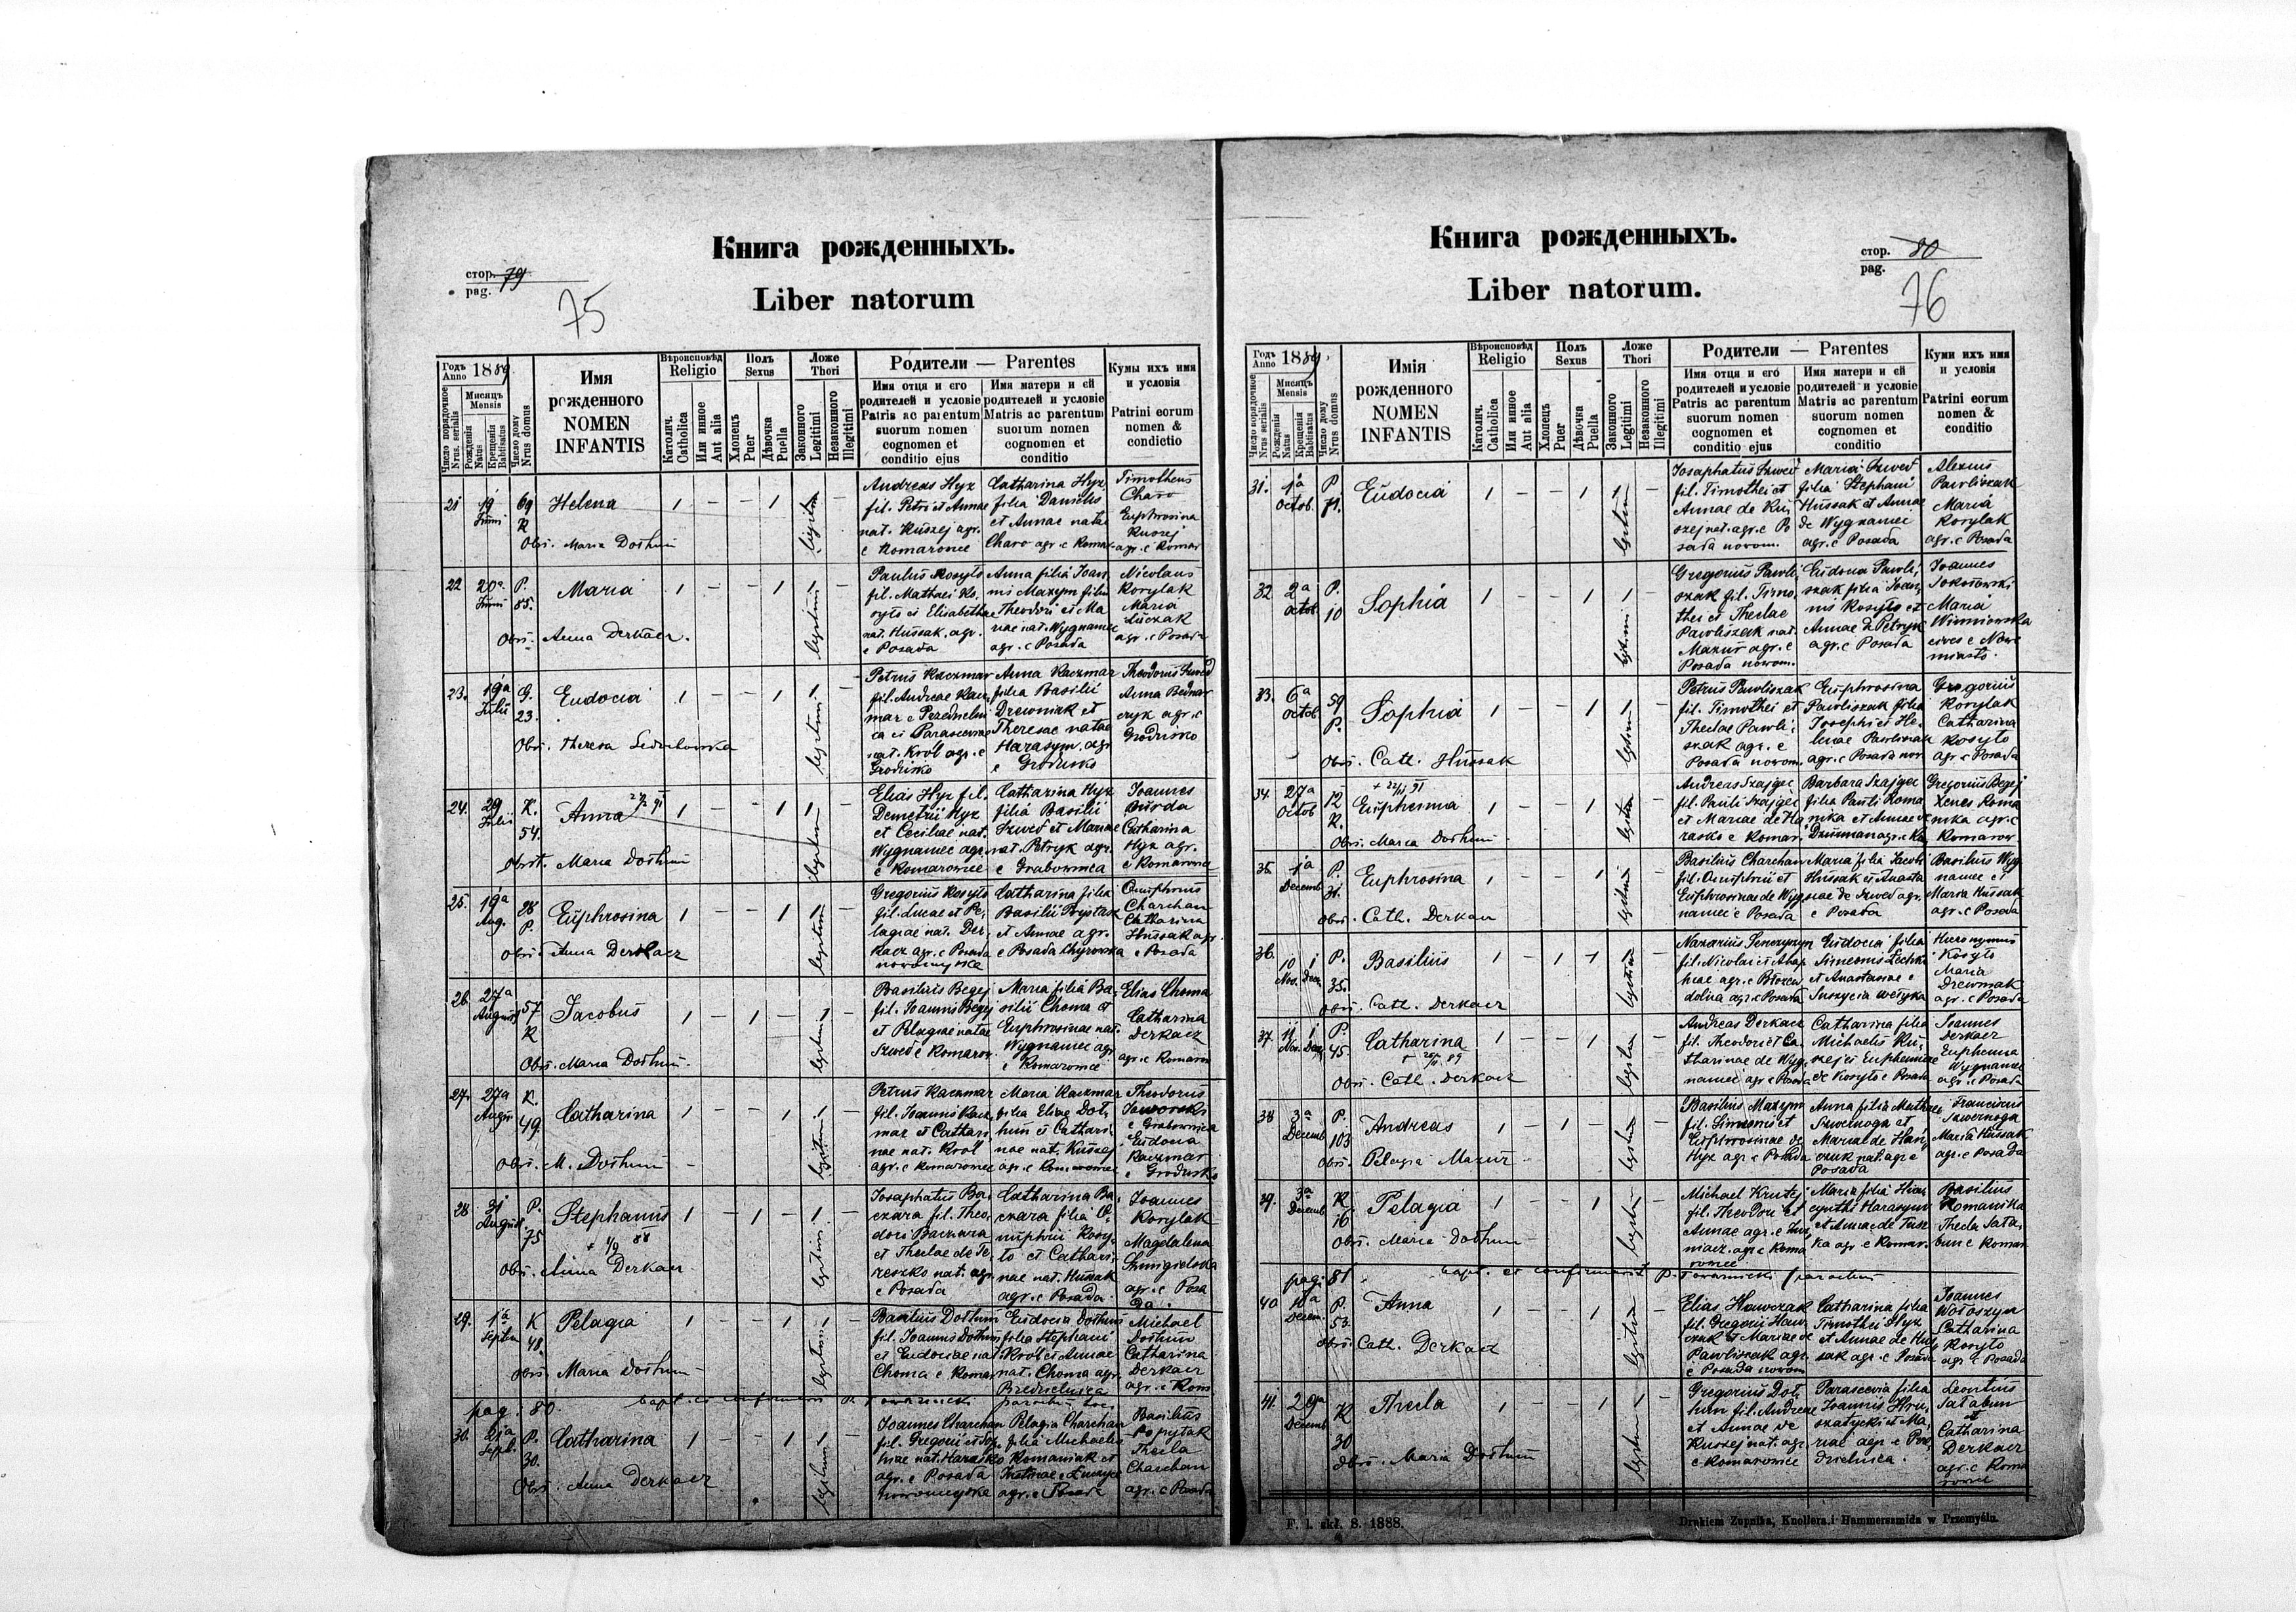 Книга рожденныхъ.
стор. 79
pag.
75
Liber natorum
Годъ 1889
Anno
Мисяцъ
Mensis
Число порядочное
Nrus. serialis
Рожденія
Natus
Крещенія
Babtisatus
Число дому
Nrus domus
Имя
рожденного
NOMEN
INFANTIS
Вѣроисповѣд
Religio
Католич.
Catholica
Или инное
Aut alia
Полъ
Sexus
Хлопецъ
Puer
Дѣвочка
Puella
Ложе
Thori
Законного
Legitimi
Незаконного
Illegitimi
Родители — Parentes
Имя отца и его
родителей и условіе
Patris ac parentum
suorum nomen
cognomen et
conditio ejus
Имя матери и ей
родителей и условіе
Matris ac parentum
suorum nomen
cognomen et
conditio
Кумы ихъ имя
и условія
Patrini eorum
nomen &
condictio
21 19 Junii 69 R Helena
Obs. Maria Dothun
Andreas Hyz
fil. Petri et Annae
nat. Kuszej agr.
e Komarowce
Catharina Hyz
filia Danielis
et Annae natae
Charo agr. e Komar
Timotheus
Charo
Euphrosina
Kuszej
agr. e Komar
22 20a Junii P. 85. Maria
Obs. Anna Derkacz.
Paulus Kosyto
fil. Mathaei Ko,
syto et Elisabethae
nat. Hussak, agr.
e Posada
Anna filia Joan,
nis Mazym filii
Theodori et Ma
riae nat. Wygnaniec
agr. e Posada
Nicolaus
Korylak
Maria
Luczak
agr. e Posada
23. 19a Julii G. 23. Eudocia
Obs. Theresa
Petrus Kaczmar
fil. Andreae Kacz,
mar e
ca et Parasceviae
nat. Krol agr. e
Grodzisko
Anna Kaczmar
filia Basilii
Drewniak et
Theresae natae
Harasym, agr
e Grodzisko
Theodorus Szwed
Anna Bednar
czyk agr. e
Grodzisko
24. 29 Julii K. 54. Anna
Obst. Maria Dothun
Elias Hyz fil.
Demetrii Hyz
et Ceciliae nat.
Wygnaniec agr.
e Komarowce
Catharina Hyz
filia Basilii
Szwed et Mariae
nat. Petryk agr.
e Grabownica
Joannes
Catharina
Hyz agr.
e Komarowce
25. 19a Aug. 28 P. Euphrosina
Obs. Anna Derkacz
Gregorius Kosyto
fil. Lucae et Pe,
lagiae nat. Der,
kacz agr. e Posada
nowomyska
Catharina filia
Basilii Prystasz
et Annae agr.
e Posada Chyrowska
Onuphrius
Charchan
Catharina
Hussak agr.
e Posada
26. 27a August 57 R Jacobus
Obs. Maria Dothun.
Basilius Begej
fil. Joannis Begej
et Pelagiae natae
Szwed e Komarow.
Maria filia Ba,
silii Choma et
Euphrosinae nat.
Wygnaniec agr
e Komarowce
Elias Choma
Catharina
Derkacz
agr. e Komarow
27. 27a Augu K. 49. Catharina
Obs. M. Dothun
Petrus Kaczmar
fil. Joannis Kacz,
mar et Cathari,
nae nat. Krol
agr. e Komarowce
Maria Kaczmar
filia Eliae Dot,
hun et Cathari,
nae nat. Kuszej
agr. e Komarowce
Theodorus
Jaworski
e Grabownica
Eudocia
Kaczmar
e Grodzisko
28. 31 August. P. 75 Stephanus
+ 1/9 88
Obs. Anna Derkacz
Josaphatus Ba,
czara fil. Theo,
dori Baczara
et Theclae de Te,
reszko nat. agr.
e Posada
Catharina Ba,
czara filia O,
nuphrii Kosy,
to et Cathari,
nae nat. Hussak
agr. e Posada.
Joannes
Korylak
Magdalena
agr. e Posa
da.
29. 1a Septem K 48. Pelagia
Obs. Maria Dothun
Basilius Dothun
fil. Joannis Dothun
et Eudociae nat
Choma e Komar
Eudocia Dothun
filia Stephani
Krol et Annae
nat. Choma agr.
Michael
Dothun
Catharina
Derkacz
agr. e Kom.
pag. 80. bapt. et confirmavit P. Towarnicki parochus loci
30. 21a Sept. P. 30. Catharina
Obs. Anna Derkacz
Joannes Charchan
fil. Gregorii et Sop,
hiae nat. Haraśko
agr. e Posada
nowomyska
Pelagia Charchan
filia Michaelis
Romaniak et
agr. e Posada
Basilius
Popytak
Thecla
Charchan
agr. e Posada
Книга рожденныхъ.
стор. 80
pag.
76
Liber natorum.
Годъ 1889.
Anno
Мисяцъ
Mensis
Число порядочное
Nrus serialis
Рожденія
Natus
Крещенія
Babtisatus
Число дому
Nrus domus
Имія
рожденного
NOMEN
INFANTIS
Вѣроисповѣд
Religio
Католич.
Catholica
Или инное
Aut alia
Полъ
Sexus
Хлопецъ
Puer
Дѣвочка
Puella
Ложе
Thori
Законного
Legitimi
Незаконного
Illegitimi
Родители — Parentes
Имя отца и его
родителей и условіе
Patris ac parentum
suorum nomen
cognomen et
conditio ejus
Имя матери и ей
родителей и условіе
Matris ac parentum
suorum nomen
cognomen et
conditio
Куми ихъ имя
и условія
Patrini eorum
nomen &
conditio
31. 1a Octob. P 71. Eudocia
Josaphatus Szwed
fil. Timothei et
Annae de Ku,
szej nat. agr. e Po
sada nowom.
Maria Szwed
filia Stephani
Hussak et Annae
de Wygnaniec
agr. e Posada
Alexius
Pawliszak
Maria
Korylak
agr. e Posada
32. 2a Octob. P. 10 Sophia
Gregorius Pawli,
szak fil. Timo,
thei et Theclae
Pawliszak nat.
Mazur agr. e
Posada nowom.
Eudocia Pawli,
szak filia Joan,
nis Kosyto et
Annae de Petryk
agr. e Posada
Joannes
Sokołowski
Maria
Wisniowska
cives e Nowe
miasto.
33. 6a Octob. 59 P. Sophia
Obs. Cath. Hussak
Petrus Pawliszak
fil. Timothei et
Theclae Pawli,
szak agr. e
Posada nowom.
Euphrosina
Pawliszak filia
Josephi et He,
lenae Pawliszak
agr. e Posada now
Gregorius
Korylak
Catharina
Kosyto
agr. e Posada
34. 27a Octob 12 R. Euphemia
Obs. Maria Dothun
Andreas Szajgec
fil. Pauli Szajgec
et Mariae de Ha
raśko e Komar.
Barbara Szajgec
filia Pauli Roma
nika et Annae de
Dziuman agr. e Ko,
Gregorius Begej
Xenes Roma
nika agr. e
Komarow
35. 1a Decemb P. 31. Euphrosina
Obs. Cath. Derkacz
Basilius Charchan
fil. Onuphrii et
Euphrosinae de Wyg
naniec e Posada
Maria filia Jacobi
Hussak et Anasta
siae de Szwed agr.
e Posada
Basilius Wyg
naniec et
Maria Hussak
agr. e Posada
36. 10 Nov. 1 Dec. P. 35. Basilius
Obs. Cath. Derkacz
fil. Nicolai et
agr. e Posada
Eudocia filia
Simeonis
et Anastasiae e
Hieronymus
Kosyto
Maria
Drewniak
agr. e Posada
37. 11 Nov. 1 Dec. P. 45. Catharina
Obs. Cath. Derkacz
Andreas Derkacz
fil. Theodori et Ca,
tharinae de Wyg,
naniec agr e Posada
Catharina filia
Michaelis Ku,
szej et Euphemiae
de Kosyto e Posada
Joannes
Derkacz
Euphemia
Wygnaniec
agr. e Posada
38 3a Decemb P. 103 Andreas
Obs. Pelagia Mazur
Basilius Mazym
fil. Simeonis et
Euphrosinae de
Hyz agr e Posada
Anna filia Mathaei
et
Mariae de Han,
czuk nat. agr e
Posada
Franciscus
Maria Hussak
agr. e Posada
39. 3a Decemb R. 16 Pelagia
Obs. Maria Dothun
Michael Krutej
fil. Theodori et
Annae agr. e
Maria filia Hia,
cynthi Harasym
et Annae de
agr e Komar.
Basilius
Romanika
Thecla Sata,
bun e Komar
pag. 81. bapt. et confirmavit P. Towarnicki parochus
40 10a Decem. P. 53. Anna
Obs. Cath. Derkacz
Elias Hawczak
fil. Gregorii Haw
czak et Mariae de
Pawliszak agr.
e Posada nowom
Catharina filia
Timothei Hyz
et Annae de Hus
sak agr. e Posada
Joannes
Wołoszyn
Catharina
Kosyto
agr. e Posada
41. 29a Decemb R 30 Thecla
Obs. Maria Dothun
Gregorius Dot,
hun fil. Andreae
et Annae de
Kuszej nat. agr
e Komarowce
Parascevia filia
Joannis
et Ma,
riae agr. e
Leontius
Satabun
et
Catharina
Derkacz
agr. e Koma
rowce
F. l. skł. 8. 1888.
Drukiem Zupnika, Knollera i Hammerszmida w Przemyślu.